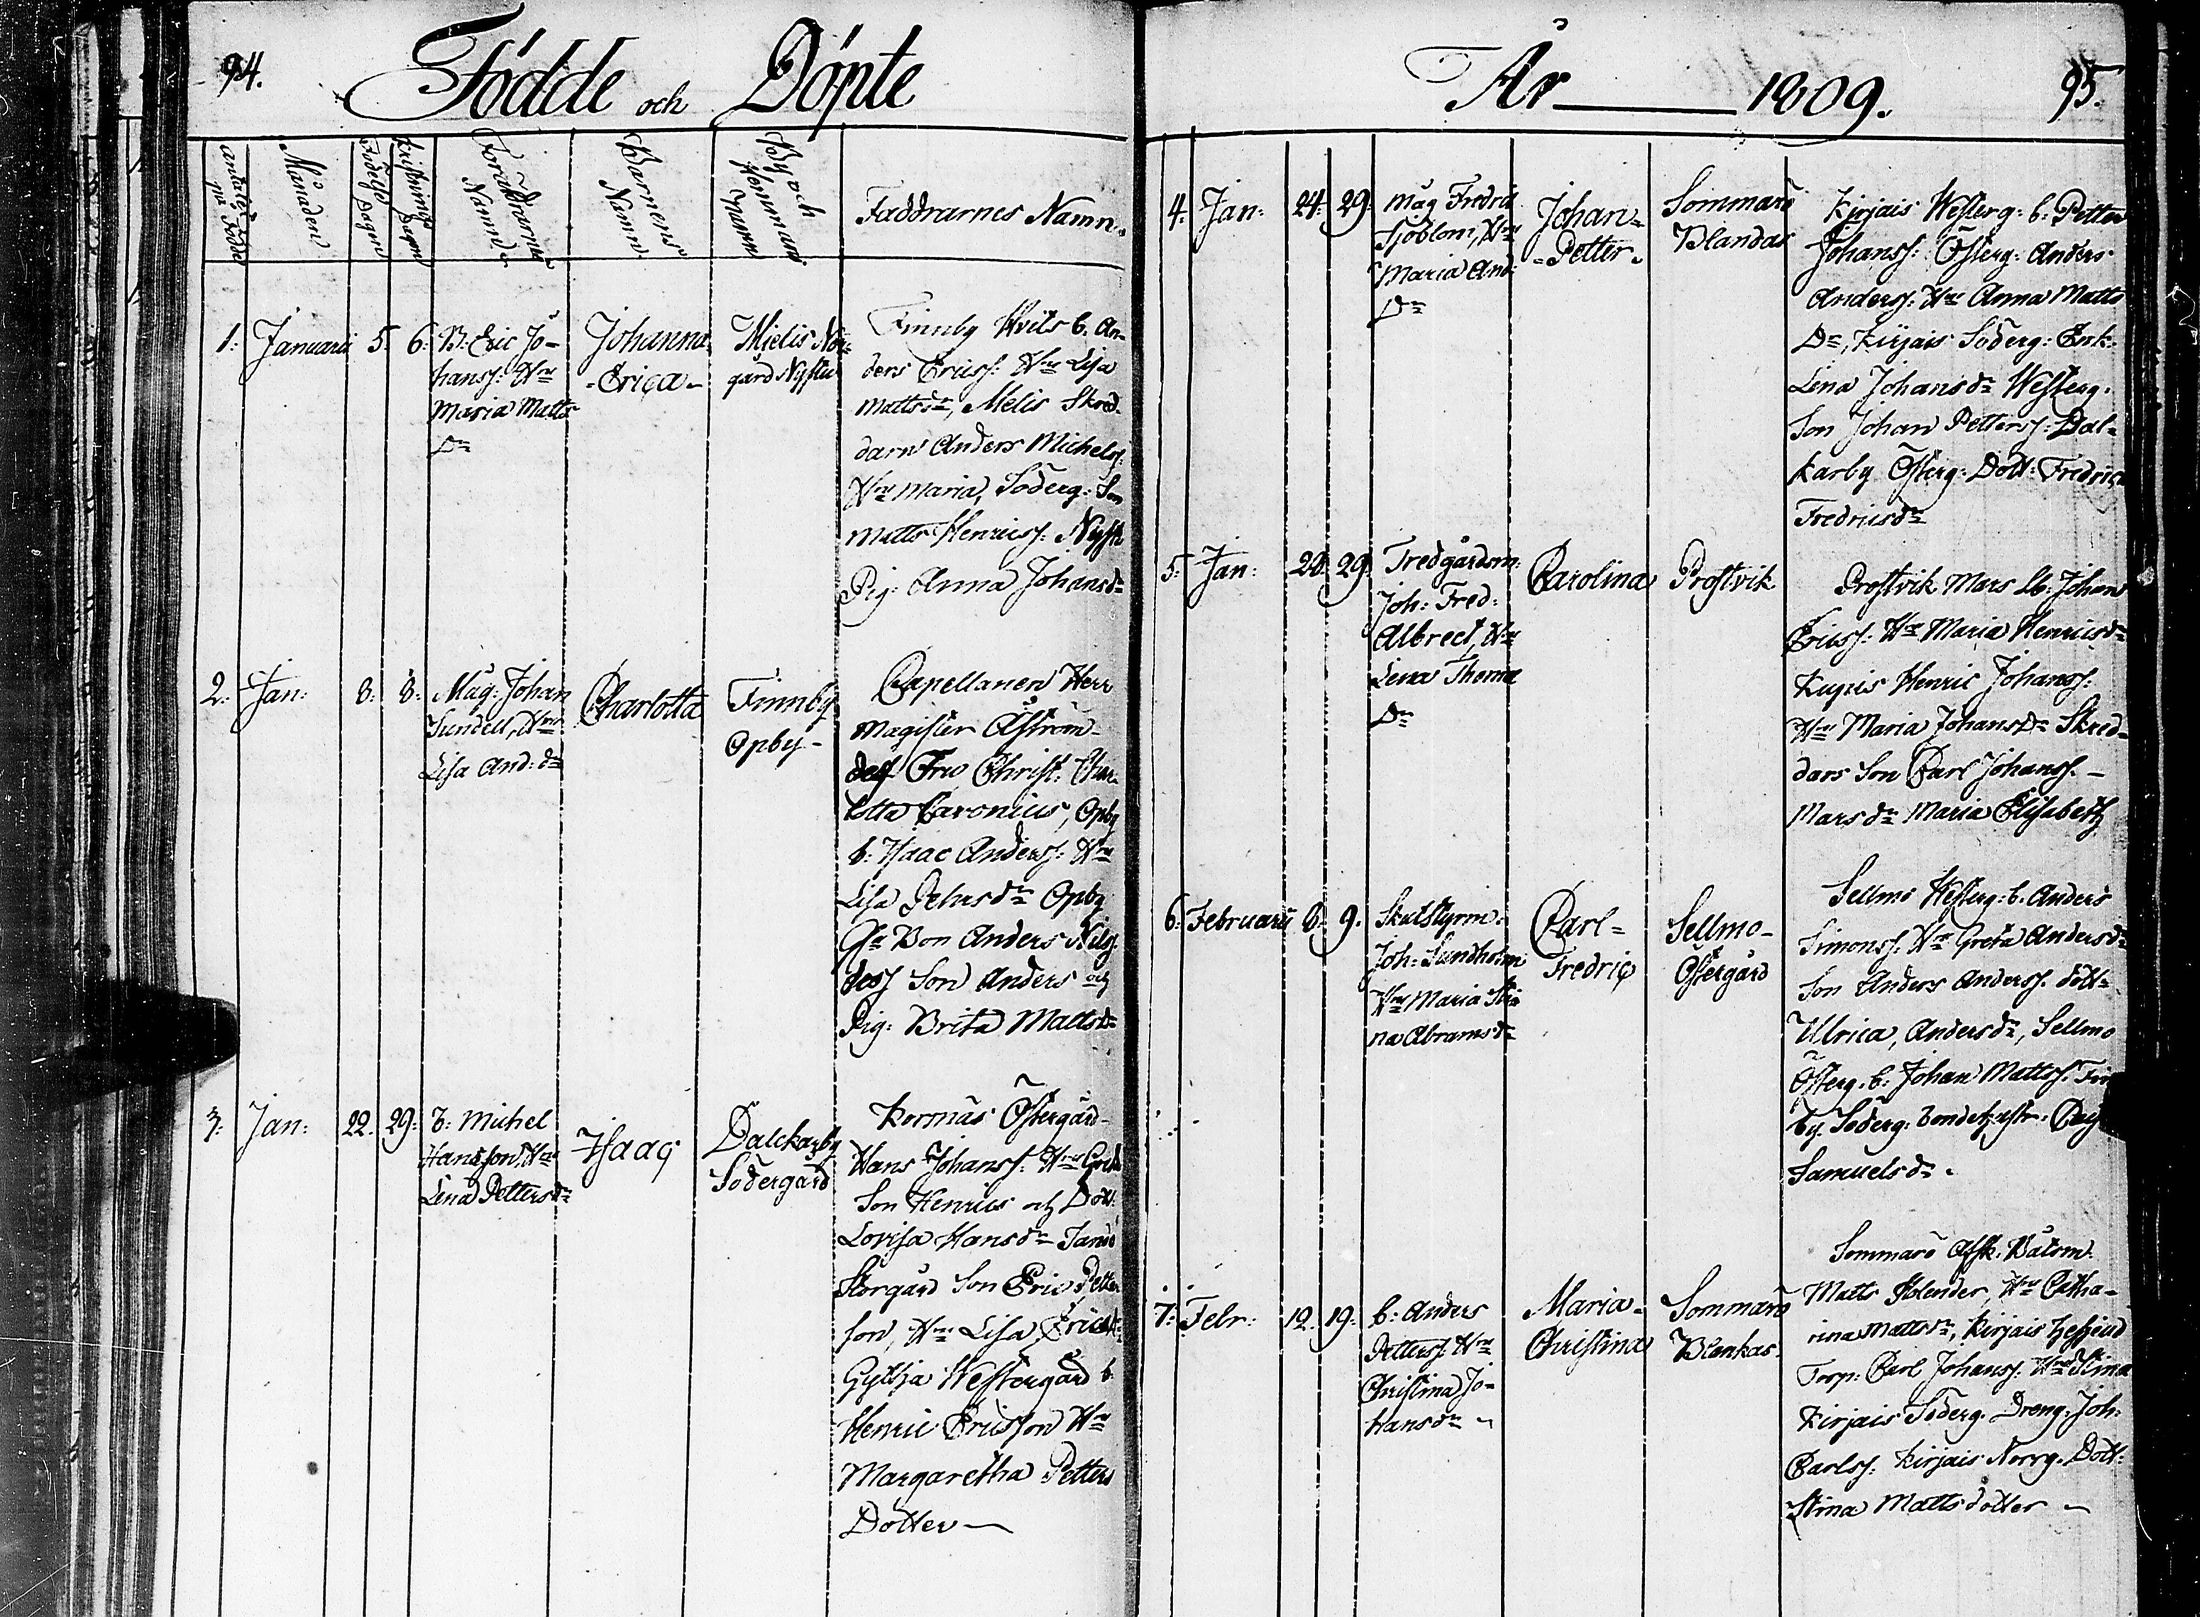 94.
Födde och Döpte
Månaden
Födelse dagen
Kristnings dagen
Föräldrarnes
Namn
Barnens
Namn
By och
Hemmans
Namn
Faddrarnes Namn.
1. Januarii 5. 6.
B: Eric Jo-
hanss: Hru
Maria Matts
Dr
Johanna
- Erica -
Mielis Nor-
gård Nystu
Finnby Hvits b. An-
ders Ericss: Hru Lisa
Mattsdr, Melis Skred-
darn Anders Michelss:
Hru Maria, Söderg: Son
Matts Henricss: Nyst
Pig: Anna Johansdr
2. Jan: 8. 8.
Mag: Johan
Sundell, Hru
Lisa And: dr
Charlotta
Finnby
Opby -
Capellanen Herr
Magister Åström
dess Fru Christ: Char-
lotta Caronius, Opby
b: Isaac Anderss: Hru
Lisa Pehrsdr Opby
Gr Bon Anders Nilss
dess Son Anders och
Pig: Brita Mattsdr
3. Jan: 22. 29.
b: Michel
Hansson, Hru
Lena Pettersdr
Isaac
Dalckarby
Södergård
Kornäs Östergård
Hans Johanss: Hru Greta
Son Henrics och Dott:
Lovisa Hansdr
Storgård Son Eric Petter
son, Hru Lisa Ericsdr
Gyttja Westergård b.
Henric Ericsson Hru
Margaretha Petters
Dotter —
År 1809.
95.
4. Jan: 24. 29.
Mag Fredric
Sjöblom, Hru
Maria And:
Dr
Johan-
- Petter.
Sommarö
Blandas
Kirjais Westerg: b. Petter
Johanss: Österg: Anders
Anderss: Hru Anna Matts
Dr, Kirjais Söderg: Enk:
Lena Johansdr Westerg:
Son Johan Petterss: Dal-
karby Österg: Dott: Fredrica
Fredricsdr
5. Jan: 28. 29.
Tredgårdsm:
Joh: Fred:
Albrect, Hru
Lena Thoma
Dr
Carolina
Prostvik
Prostvik Mars Lb: Johan
Ericss: Hru Maria Henricsdr
Kupis Henric Johanss:
Hru Maria Johansdr Skred-
dars Son Carl Johanss. -
Marsdr Maria Elisabeth
6. Februarii 8. 9.
Skutstyrm:
Joh: Sundholm
Hru Maria Sti
na Abramsdr
Carl-
Fredric
Sellmo-
Östergård
Sellmo Westerg: b. Anders
Simonss: Hru Greta Andersdr
Son Anders Anderss. dott:
Ulrica, Andersdr, Sellmo
Österg. b: Johan Mattss. Fin
by. Söderg.
Samuelsdr.
7. Febr: 12. 19.
b: Anders
Petterss. Hru
Christina Jo-
hansdr
Maria-
Christina
Sommarö
Blenkas.
Sommarö Afsk. Båtsm:
Matts Holender, Hru Catha-
rina Mattsdr, Kirjais
Torp: Carl Johanss: Hru Stina
Kirjais Söderg. Dreng. Joh:
Carlss: Kirjais Norrg. Dott:
Stina Mattsdotter —